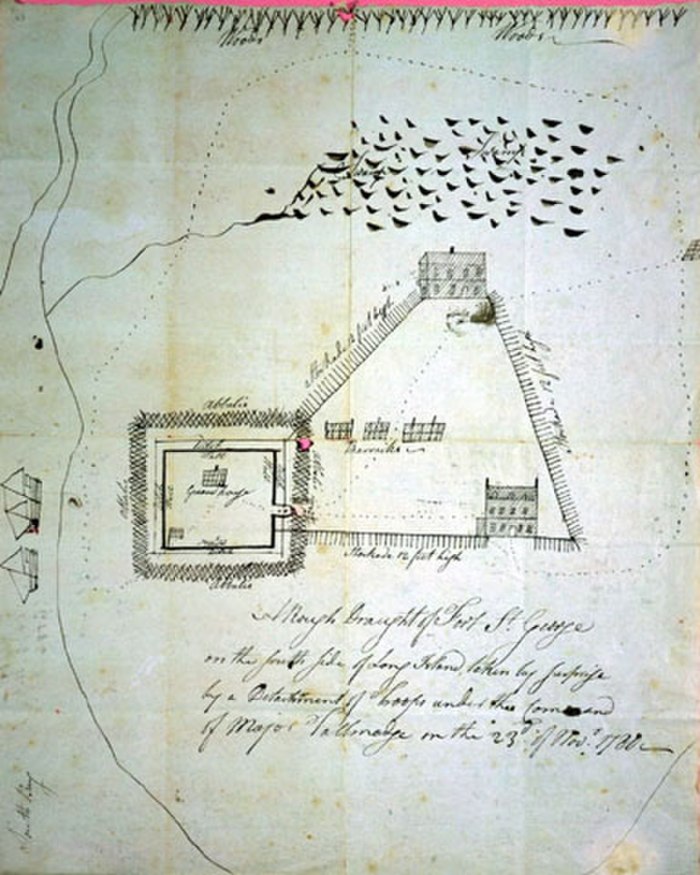 Woods
Woods
Swamp
Swamp
Stockade 12 feet high
Stockade 12 feet high
Abbatis
Ditch
Wall
Barracks
Guard house
Abbatis
Stockade 12 feet high
Abbatis
A Rough Draught of Fort St. George
on the South Side of Long Island, taken by surprise
by a Detachment of Troops under the Command
of Major Tallmadge on the 23d. of Novr. 1780
South Bay